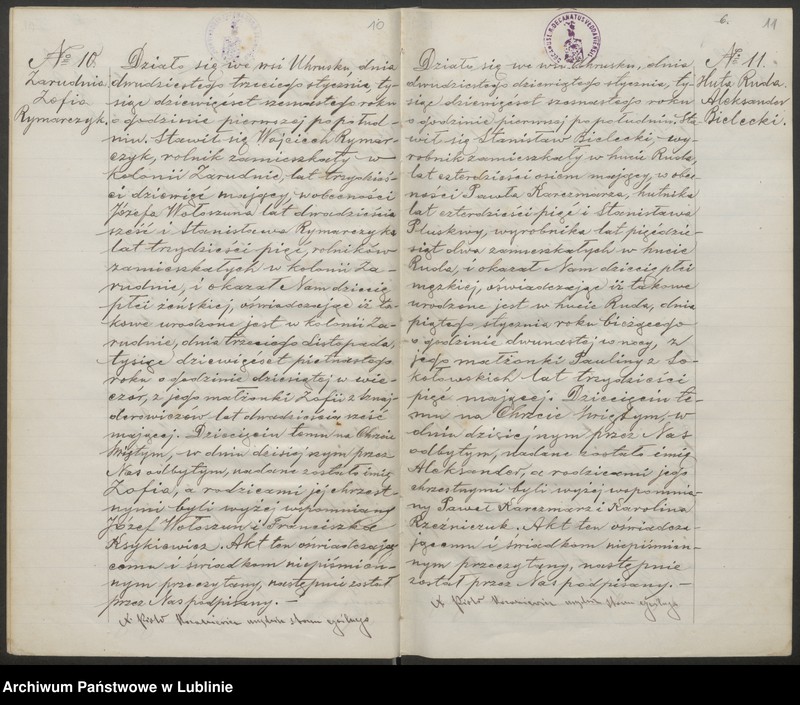 10
№ 10.
Zarudnia.
Zofia
Rymarczyk.
Działo się we wsi Uhrusku, dnia
dwudziestego trzeciego stycznia, ty-
siąc dziewięćset szesnastego roku
o godzinie pierwszej popołud-
niu. Stawił się Wojciech Rymar-
czyk, rolnik zamieszkały w
kolonii Zarudnie, lat trzydzieś-
ci dziewięć mający, w obecności
Józefa Wołoszuna lat dwadzieścia
sześć i Stanisława Rymarczyka
lat trzydzieści pięć, rolników
zamieszkałych w kolonii Za-
rudnie, i okazał Nam dziecię
płci żeńskiej, oświadczając iż ta-
kowe urodzone jest w kolonii Za-
rudnie, dnia trzeciego Listopada,
tysiąc dziewięćset piętnastego
roku o godzinie dziesiątej w wie-
czór, z jego małżonki Zofii z
lat dwadzieścia sześć
mającej. Dziecięciu temu na Chrzcie
Świętym, w dniu dzisiejszym przez
Nas odbytym, nadane zostało imię
Zofia, a rodzicami jej chrzest-
nymi byli wyżej wspomniany
Józef Wołoszun i Franciszka
Ksykiewicz. Akt ten oświadczają-
cemu i świadkom niepiśmien-
nym przeczytany, następnie został
przez Nas podpisany. —
X Piotr
6.
11
№ 11.
Huta Ruda.
Aleksander
Bielecki.
Działo się we wsi Uhrusku, dnia
dwudziestego dziewiątego stycznia, ty-
siąc dziewięćset szesnastego roku
o godzinie pierwszej popołudniu. Sta-
wił się Stanisław Bielecki, wy-
robnik zamieszkały w hucie Ruda,
lat czterdzieści ośim mający, w obec-
ności Pawła Karczmarza, hutnika
lat czterdzieści pięć i Stanisława
Pluskwy, wyrobnika lat pięćdzie-
siąt dwa zamieszkałych w hucie
Ruda, i okazał Nam dziecię płci
męzkiej, oświadczając iż takowe
urodzone jest w hucie Ruda, dnia
piątego stycznia roku bieżącego
o godzinie dwunastej w nocy, z
jego małżonki Pauliny z So-
kołowskich lat trzydzieści
pięć mającej. Dziecięciu te-
mu na Chrzcie Świętym, w
dniu dzisiejszym przez Nas
odbytym, nadane zostało imię
Aleksander, a rodzicami jego
chrzestnymi byli wyżej wspomnia-
ny Paweł Karczmarz i Karolina
Rzeźniczuk. Akt ten oświadcza-
jącemu i świadkom niepiśmien-
nym przeczytany, następnie
został przez Nas podpisany. —
X Piotr
Archiwum Państwowe w Lublinie